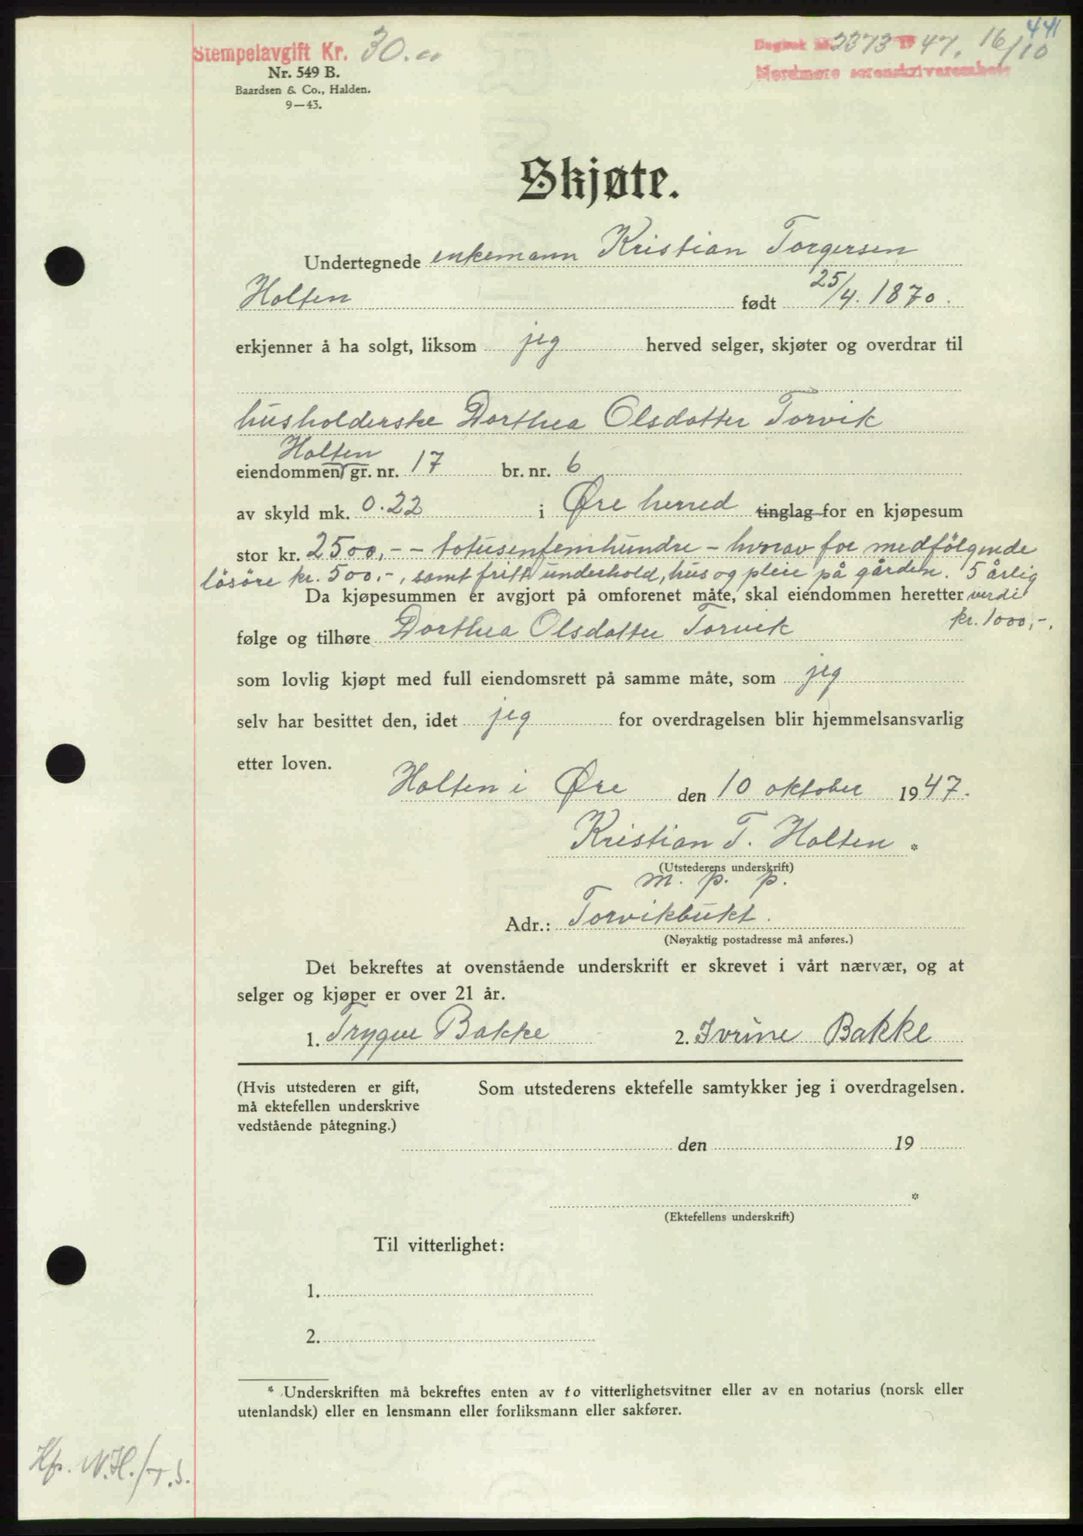 441
Stempelavgift Kr. 30.00
Dagbok nr. 2373 1947. 16/10
Nordmøre sorenskriverembete
Nr. 549 B.
Baardsen & Co., Halden.
9—43.
Skjøte.
Undertegnede enkemann Kristian Torgersen
Holten født 25/4. 1870.
erkjenner å ha solgt, liksom jeg herved selger, skjøter og overdrar til
husholderske Dorthea Olsdatter Torvik
Holten
eiendommen gr. nr. 17 br. nr. 6
av skyld mk. 0.22 i Øre herred tinglag for en kjøpesum
stor kr. 2500,- - totusenfemhundre - hvorav for medfølgende
løsøre kr. 500,-, samt fritt underhold, hus og pleie på gården. 5 årlig
Da kjøpesummen er avgjort på omforenet måte, skal eiendommen heretter verdi
kr. 1000,-.
følge og tilhøre Dorthea Olsdatter Torvik
som lovlig kjøpt med full eiendomsrett på samme måte, som jeg
selv har besittet den, idet jeg for overdragelsen blir hjemmelsansvarlig
etter loven.
Holten i Øre den 10 oktober 1947.
Kristian T. Holten *
(Utstederens underskrift)
m. p. p.
Adr.: Torvikbukt.
(Nøyaktig postadresse må anføres.)
Det bekreftes at ovenstående underskrift er skrevet i vårt nærvær, og at
selger og kjøper er over 21 år.
1. Trygve Bakke 2. Ivrine Bakke
(Hvis utstederen er gift, Som utstederens ektefelle samtykker jeg i overdragelsen.
må ektefellen underskrive
vedstående påtegning.)
den 19
*
(Ektefellens underskrift)
Til vitterlighet:
1.
2.
* Underskriften må bekreftes enten av to vitterlighetsvitner eller av en notarius (norsk eller
utenlandsk) eller en lensmann eller forliksmann eller sakfører.
Kp. N.H./T.S.